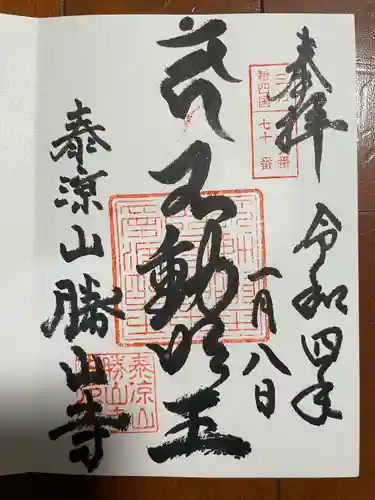 奉拝
令和四年
一月八日
不動明王
泰涼山勝山寺
新四国
七十番
番
泰涼山
勝山寺